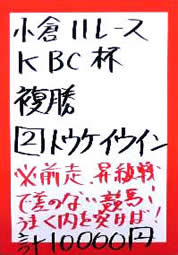 小倉11レース
KBC杯
複勝
2トウケイウイン
※前走、昇級戦
で差のない競馬!
うまく内を突けば!
計10000円